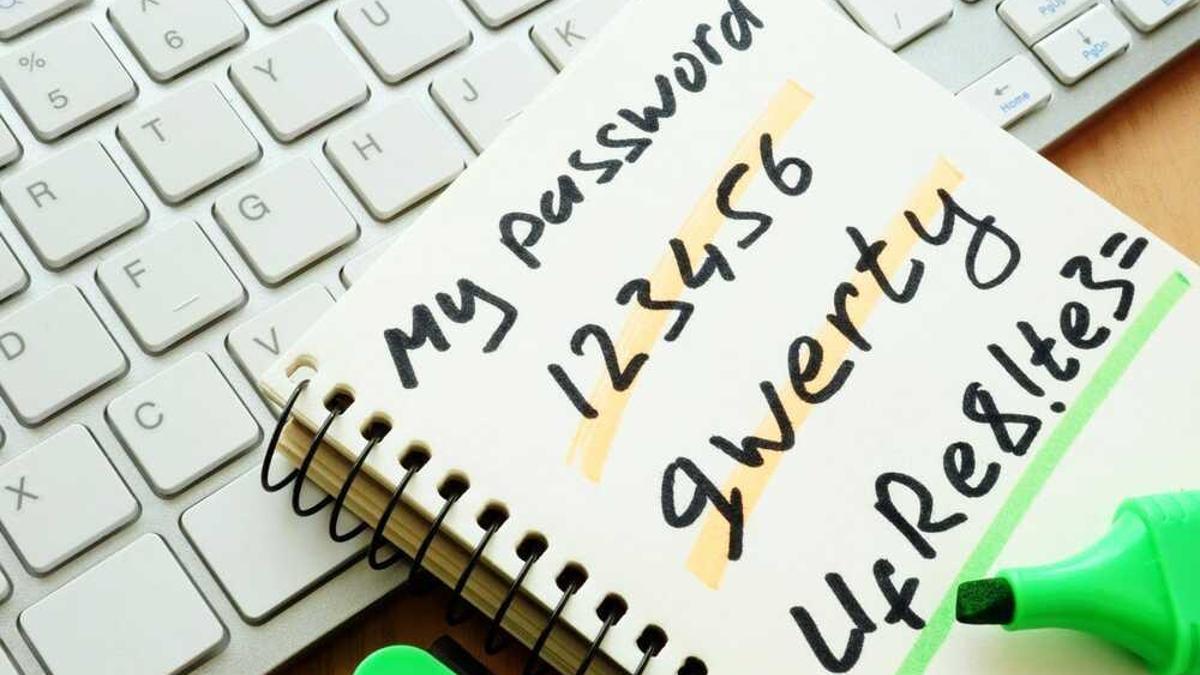 My password
123456
qwerty
UfRe8!te3=
%
5
6
Y
U
R
T
H
J
K
D
F
G
X
C
V
/
PgUp
PgDn
Home